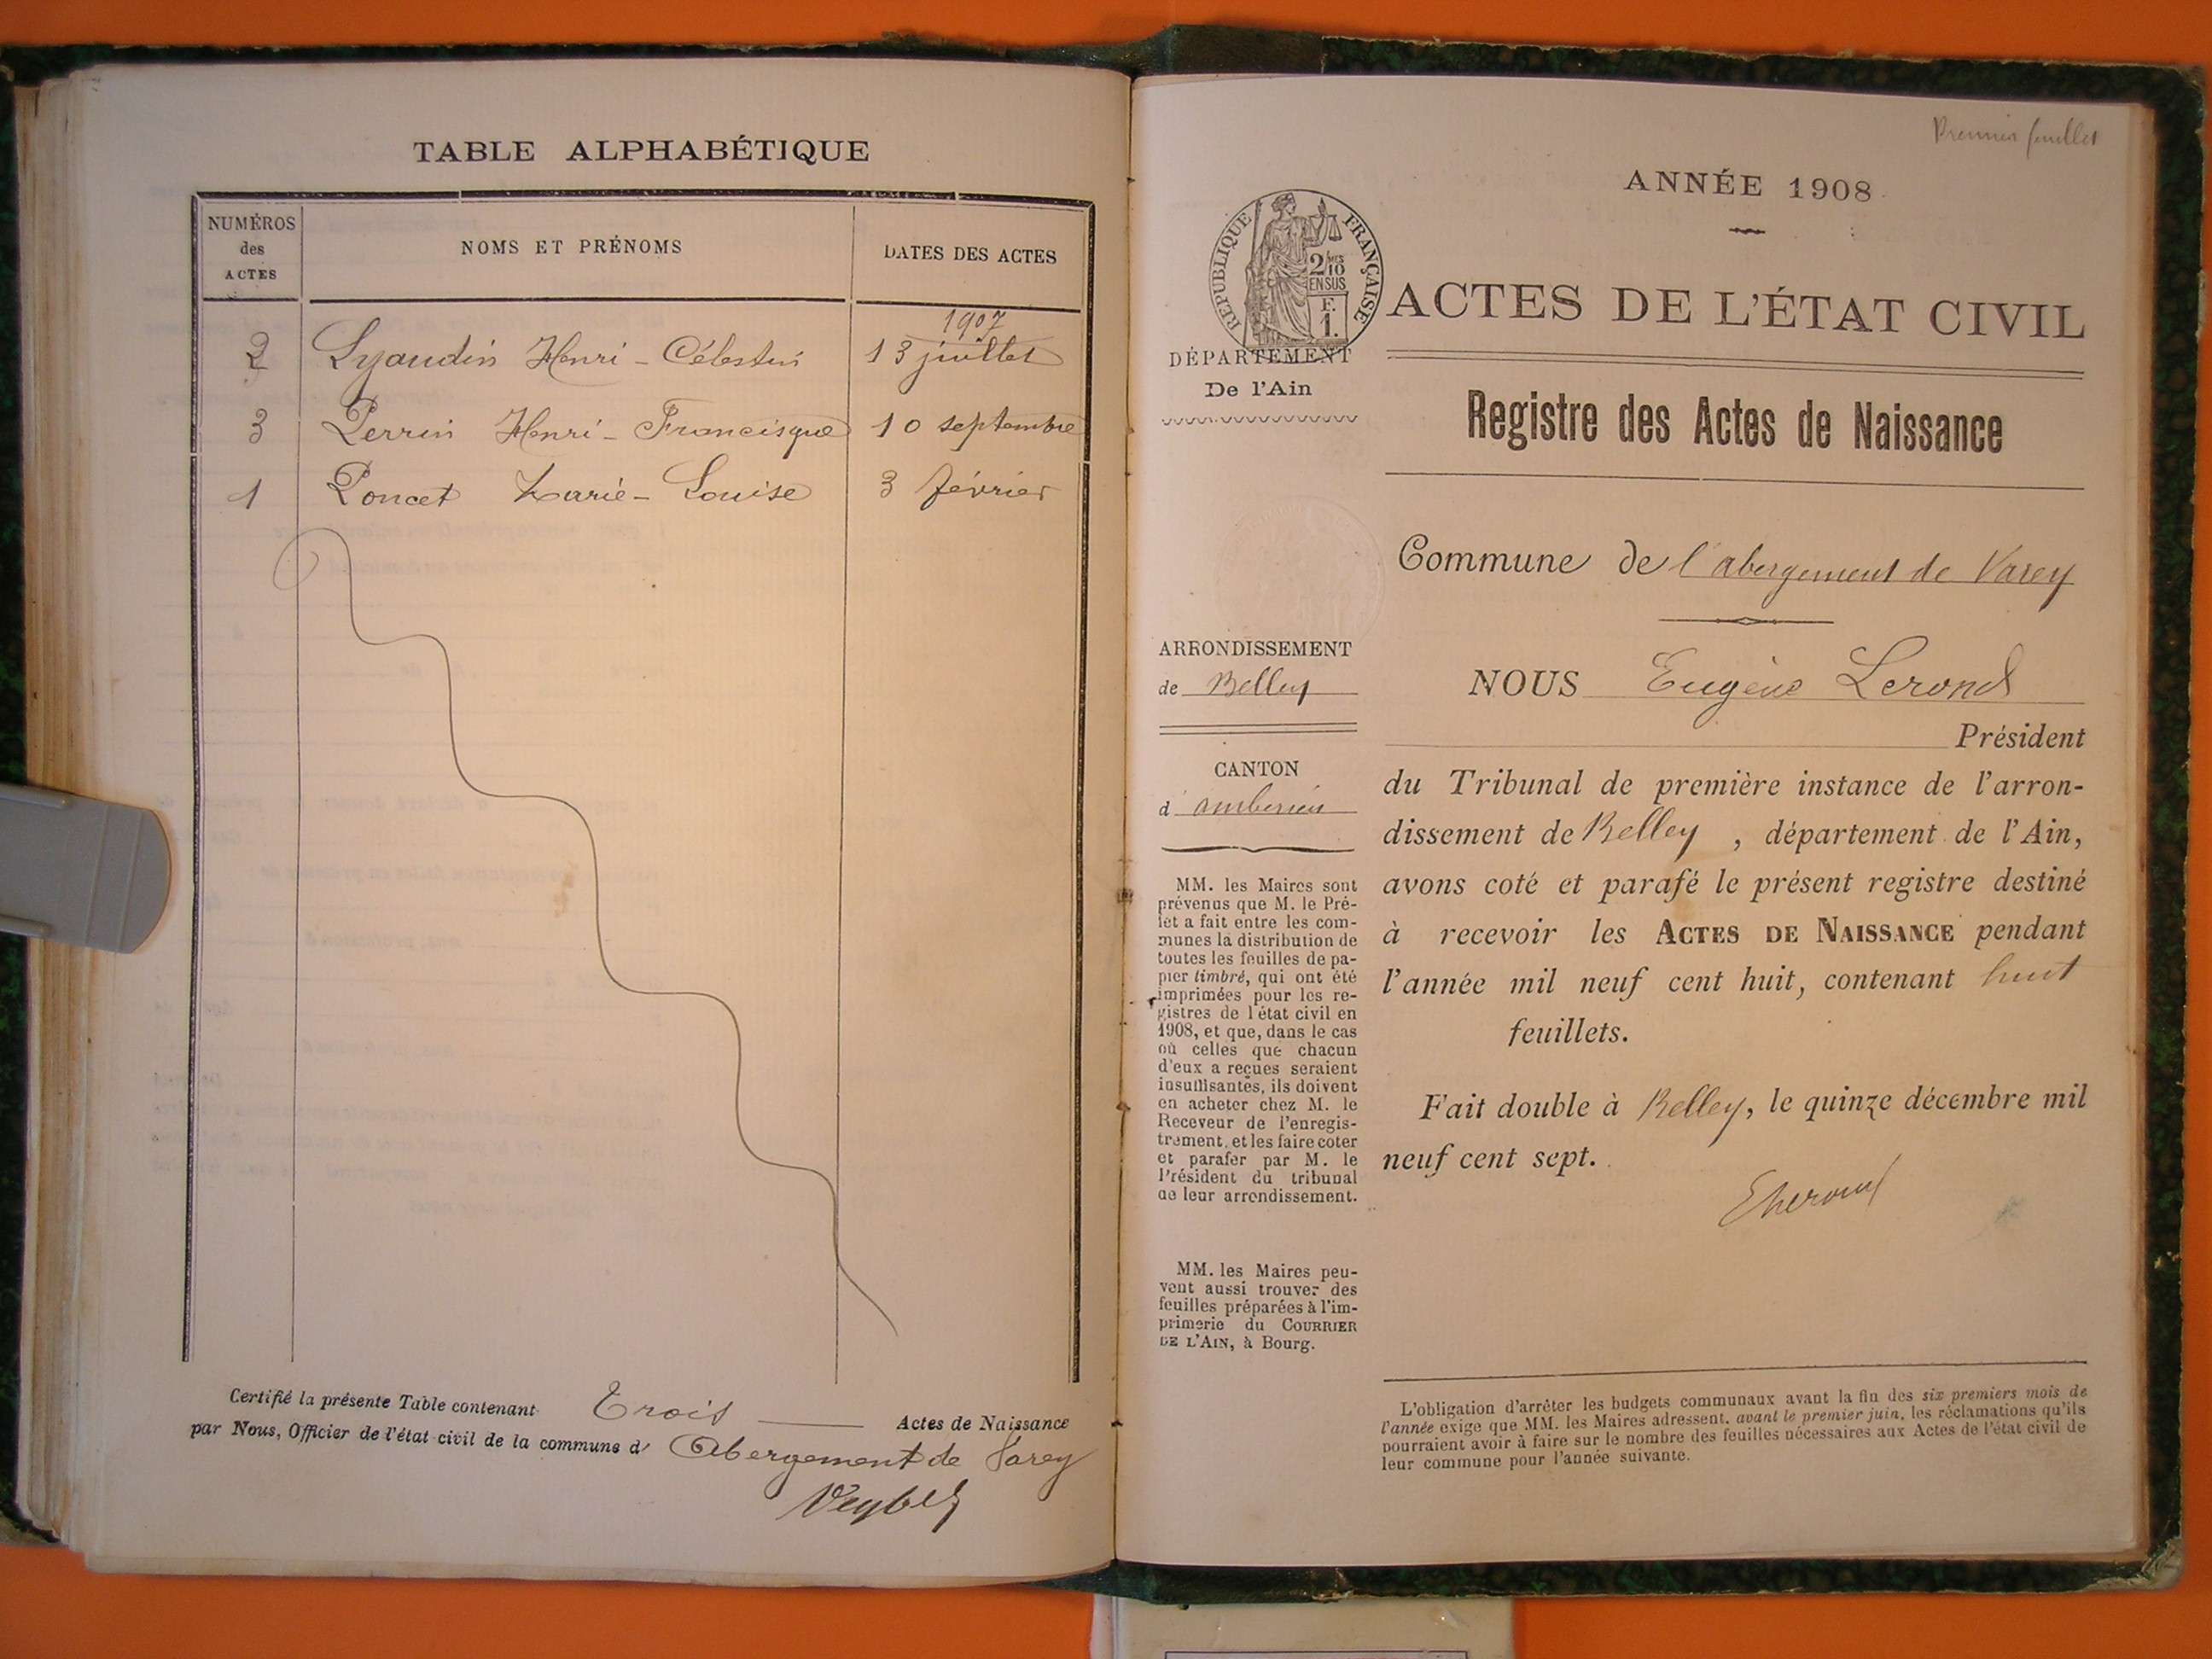 TABLE ALPHABÉTIQUE
NUMÉROS
des
ACTES
NOMS ET PRÉNOMS
DATES DES ACTES
1907
2 Lyaudin Henri - Célestin 13 juillet
3 Perrin Henri - Francisque 10 septembre
1 Poncet Marie - Louise 3 février
Certifié la présente Table contenant Trois Actes de Naissance
par Nous, Officier de l'état civil de la commune d' Abergement de Varey
Premier feuillet
ANNÉE 1908
RÉPUBLIQUE FRANÇAISE
2/10
EN SUS
F.
1.
ACTES DE L'ÉTAT CIVIL
DÉPARTEMENT
De l'Ain
Registre des Actes de Naissance
Commune de l'abergement de Varey
ARRONDISSEMENT
de Belley
CANTON
d' ambérieu
MM. les Maires sont
prévenus que M. le Pré-
fet a fait entre les com-
munes la distribution de
toutes les feuilles de pa-
pier timbré, qui ont été
imprimées pour les re-
gistres de l'état civil en
1908, et que, dans le cas
où celles que chacun
d'eux a reçues seraient
insuffisantes, ils doivent
en acheter chez M. le
Receveur de l'enregis-
trement, et les faire coter
et parafer par M. le
Président du tribunal
de leur arrondissement.
MM. les Maires peu-
vent aussi trouver des
feuilles préparées à l'im-
primerie du COURRIER
DE L'AIN, à Bourg.
NOUS Eugène Lerond
Président
du Tribunal de première instance de l'arron-
dissement de Belley, département de l'Ain,
avons coté et parafé le présent registre destiné
à recevoir les ACTES DE NAISSANCE pendant
l'année mil neuf cent huit, contenant huit
feuillets.
Fait double à Belley, le quinze décembre mil
neuf cent sept.
L'obligation d'arrêter les budgets communaux avant la fin des six premiers mois de
l'année exige que MM. les Maires adressent, avant le premier juin, les réclamations qu'ils
pourraient avoir à faire sur le nombre des feuilles nécessaires aux Actes de l'état civil de
leur commune pour l'année suivante.